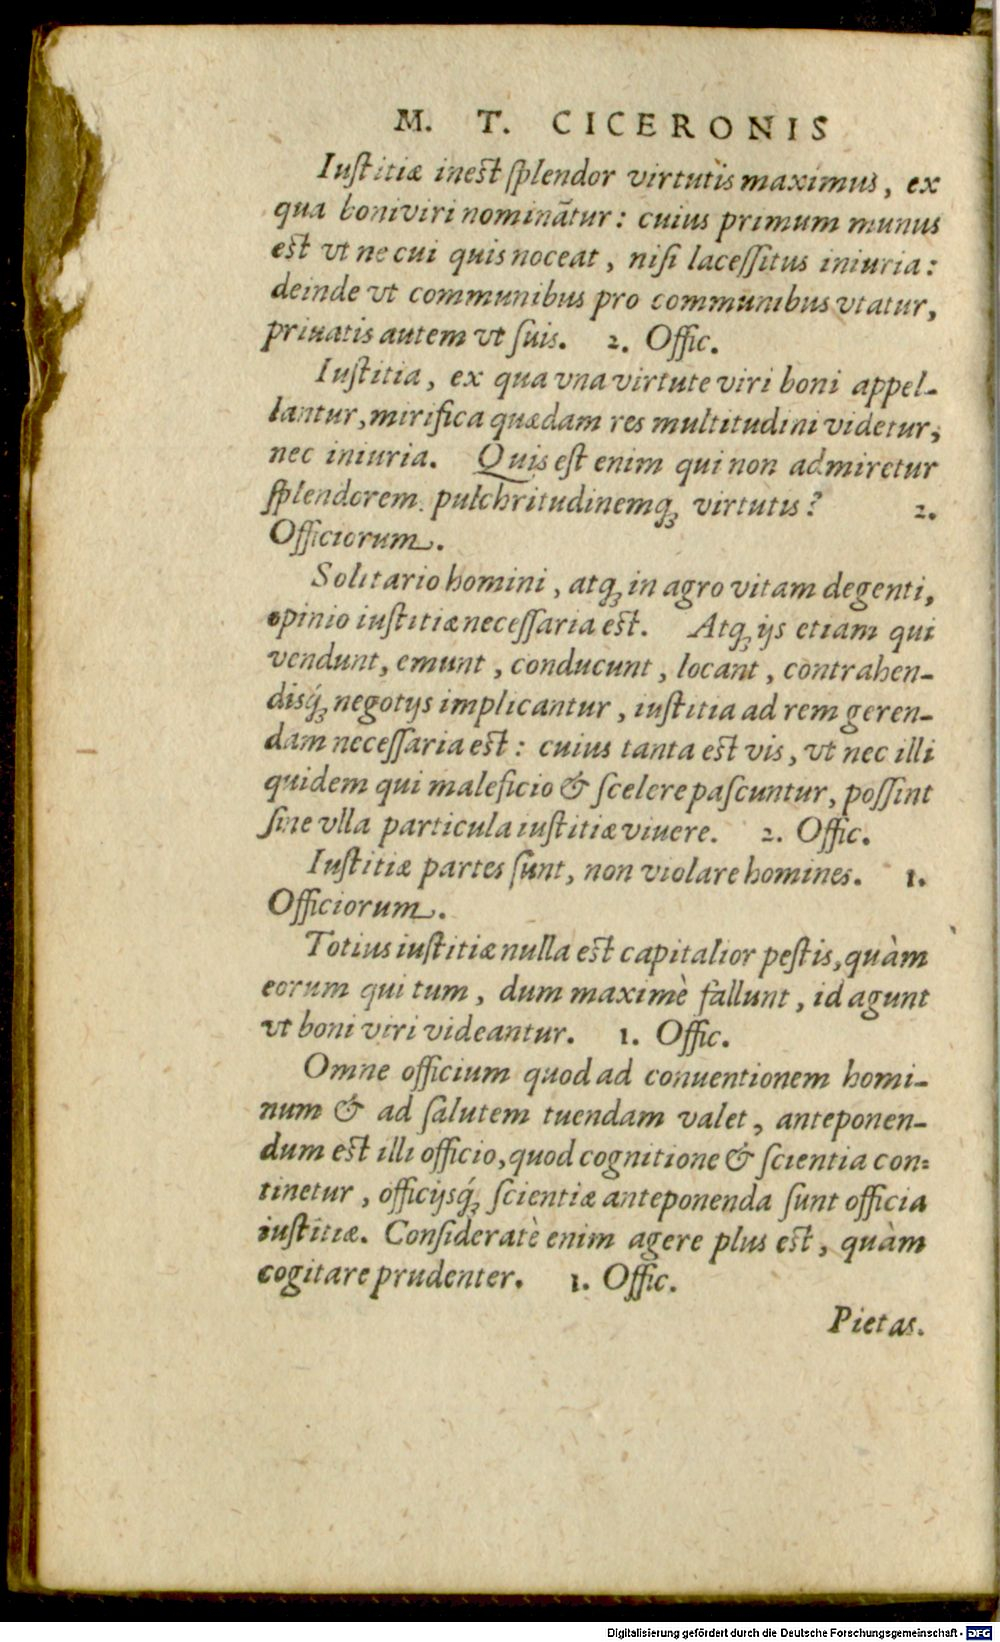 M. T. CICERONIS
Iuſtitiæ ineſt ſplendor virtutis maximus, ex
qua boni viri nominãtur: cuius primum munus
eſt vt ne cui quis noceat, niſi laceſſitus iniuria:
deinde vt communibus pro communibus vtatur,
priuatis autem vt ſuis. 2. Offic.
Iuſtitia, ex qua vna virtute viri boni appel-
lantur, mirifica quædam res multitudini videtur,
nec iniuria. Quis eſt enim qui non admiretur
ſplendorem pulchritudinemq; virtutis? 2.
Officiorum.
Solitario homini, atq; in agro vitam degenti,
opinio iuſtitiæ neceſſaria eſt. Atq; ijs etiam qui
vendunt, emunt, conducunt, locant, contrahen-
disq́; negotijs implicantur, iuſtitia ad rem geren-
dam neceſſaria eſt: cuius tanta eſt vis, vt nec illi
quidem qui maleficio & ſcelere paſcuntur, poſſint
ſine vlla particula iuſtitiæ viuere. 2. Offic.
Iuſtitiæ partes ſunt, non violare homines. 1.
Officiorum.
Totius iuſtitiæ nulla eſt capitalior peſtis, quàm
eorum qui tum, dum maximè fallunt, id agunt
vt boni viri videantur. 1. Offic.
Omne officium quod ad conuentionem homi-
num & ad ſalutem tuendam valet, anteponen-
dum eſt illi officio, quod cognitione & ſcientia con-
tinetur, officijsq́; ſcientiæ anteponenda ſunt officia
iuſtitiæ. Conſideratè enim agere plus eſt, quàm
cogitare prudenter. 1. Offic.
Pietas.
Digitalisierung gefördert durch die Deutsche Forschungsgemeinschaft - DFG